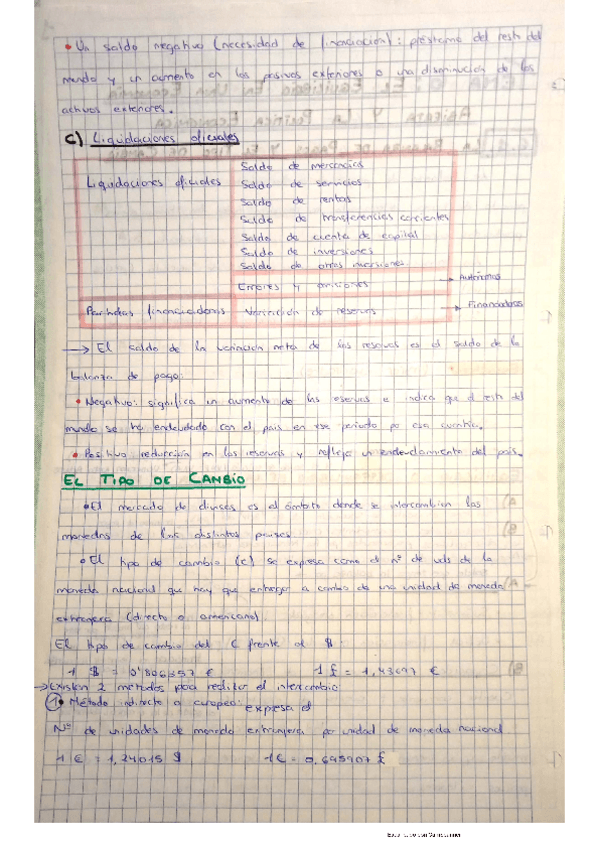 • Un saldo negativo (necesidad de financiación): préstamo del resto del
mundo y un aumento en los pasivos exteriores o una disminución de los
activos exteriores.
c) Liquidaciones oficiales
Liquidaciones oficiales
Saldo de mercancías
Saldo de servicios
Saldo de rentas
Saldo de transferencias corrientes
Saldo de cuenta de capital
Saldo de inversiones
Saldo de otras inversiones
Errores y omisiones → Autónomas
Partidas financiadoras Variación de reservas → Financiadoras
→ El saldo de la variación neta de las reservas es el saldo de la
balanza de pago:
• Negativo: significa un aumento de las reservas e indica que el resto del
mundo se ha endeudado con el país en ese periodo por esa cuantía.
• Positivo reducción en las reservas y refleja un endeudamiento del país.
EL TIPO DE CAMBIO
• El mercado de divisas es el ámbito donde se intercambian las
monedas de los distintos países.
• El tipo de cambio (e) se expresa como el nº de uds de la
moneda nacional que hay que entregar a cambio de una unidad de moneda
extranjera (directo o americano)
El tipo de cambio del € frente al $.
1 $ = 0'806357 € 1 £ = 1,43697 €
→ Existen 2 métodos para realizar el intercambio
① • Método indirecto o europeo: expresa el
Nº de unidades de moneda extranjera por unidad de moneda nacional
1 € = 1,24015 $ 1€ = 0,695907 £